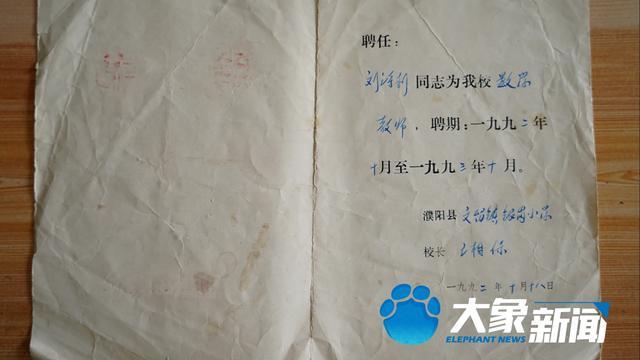 聘任：
同志为我校数学
教师，聘期：一九九二年
十月至一九九三年十月。
濮阳县文留镇小学
校长
一九九二年十月十八日
大象新闻
ELEPHANT NEWS